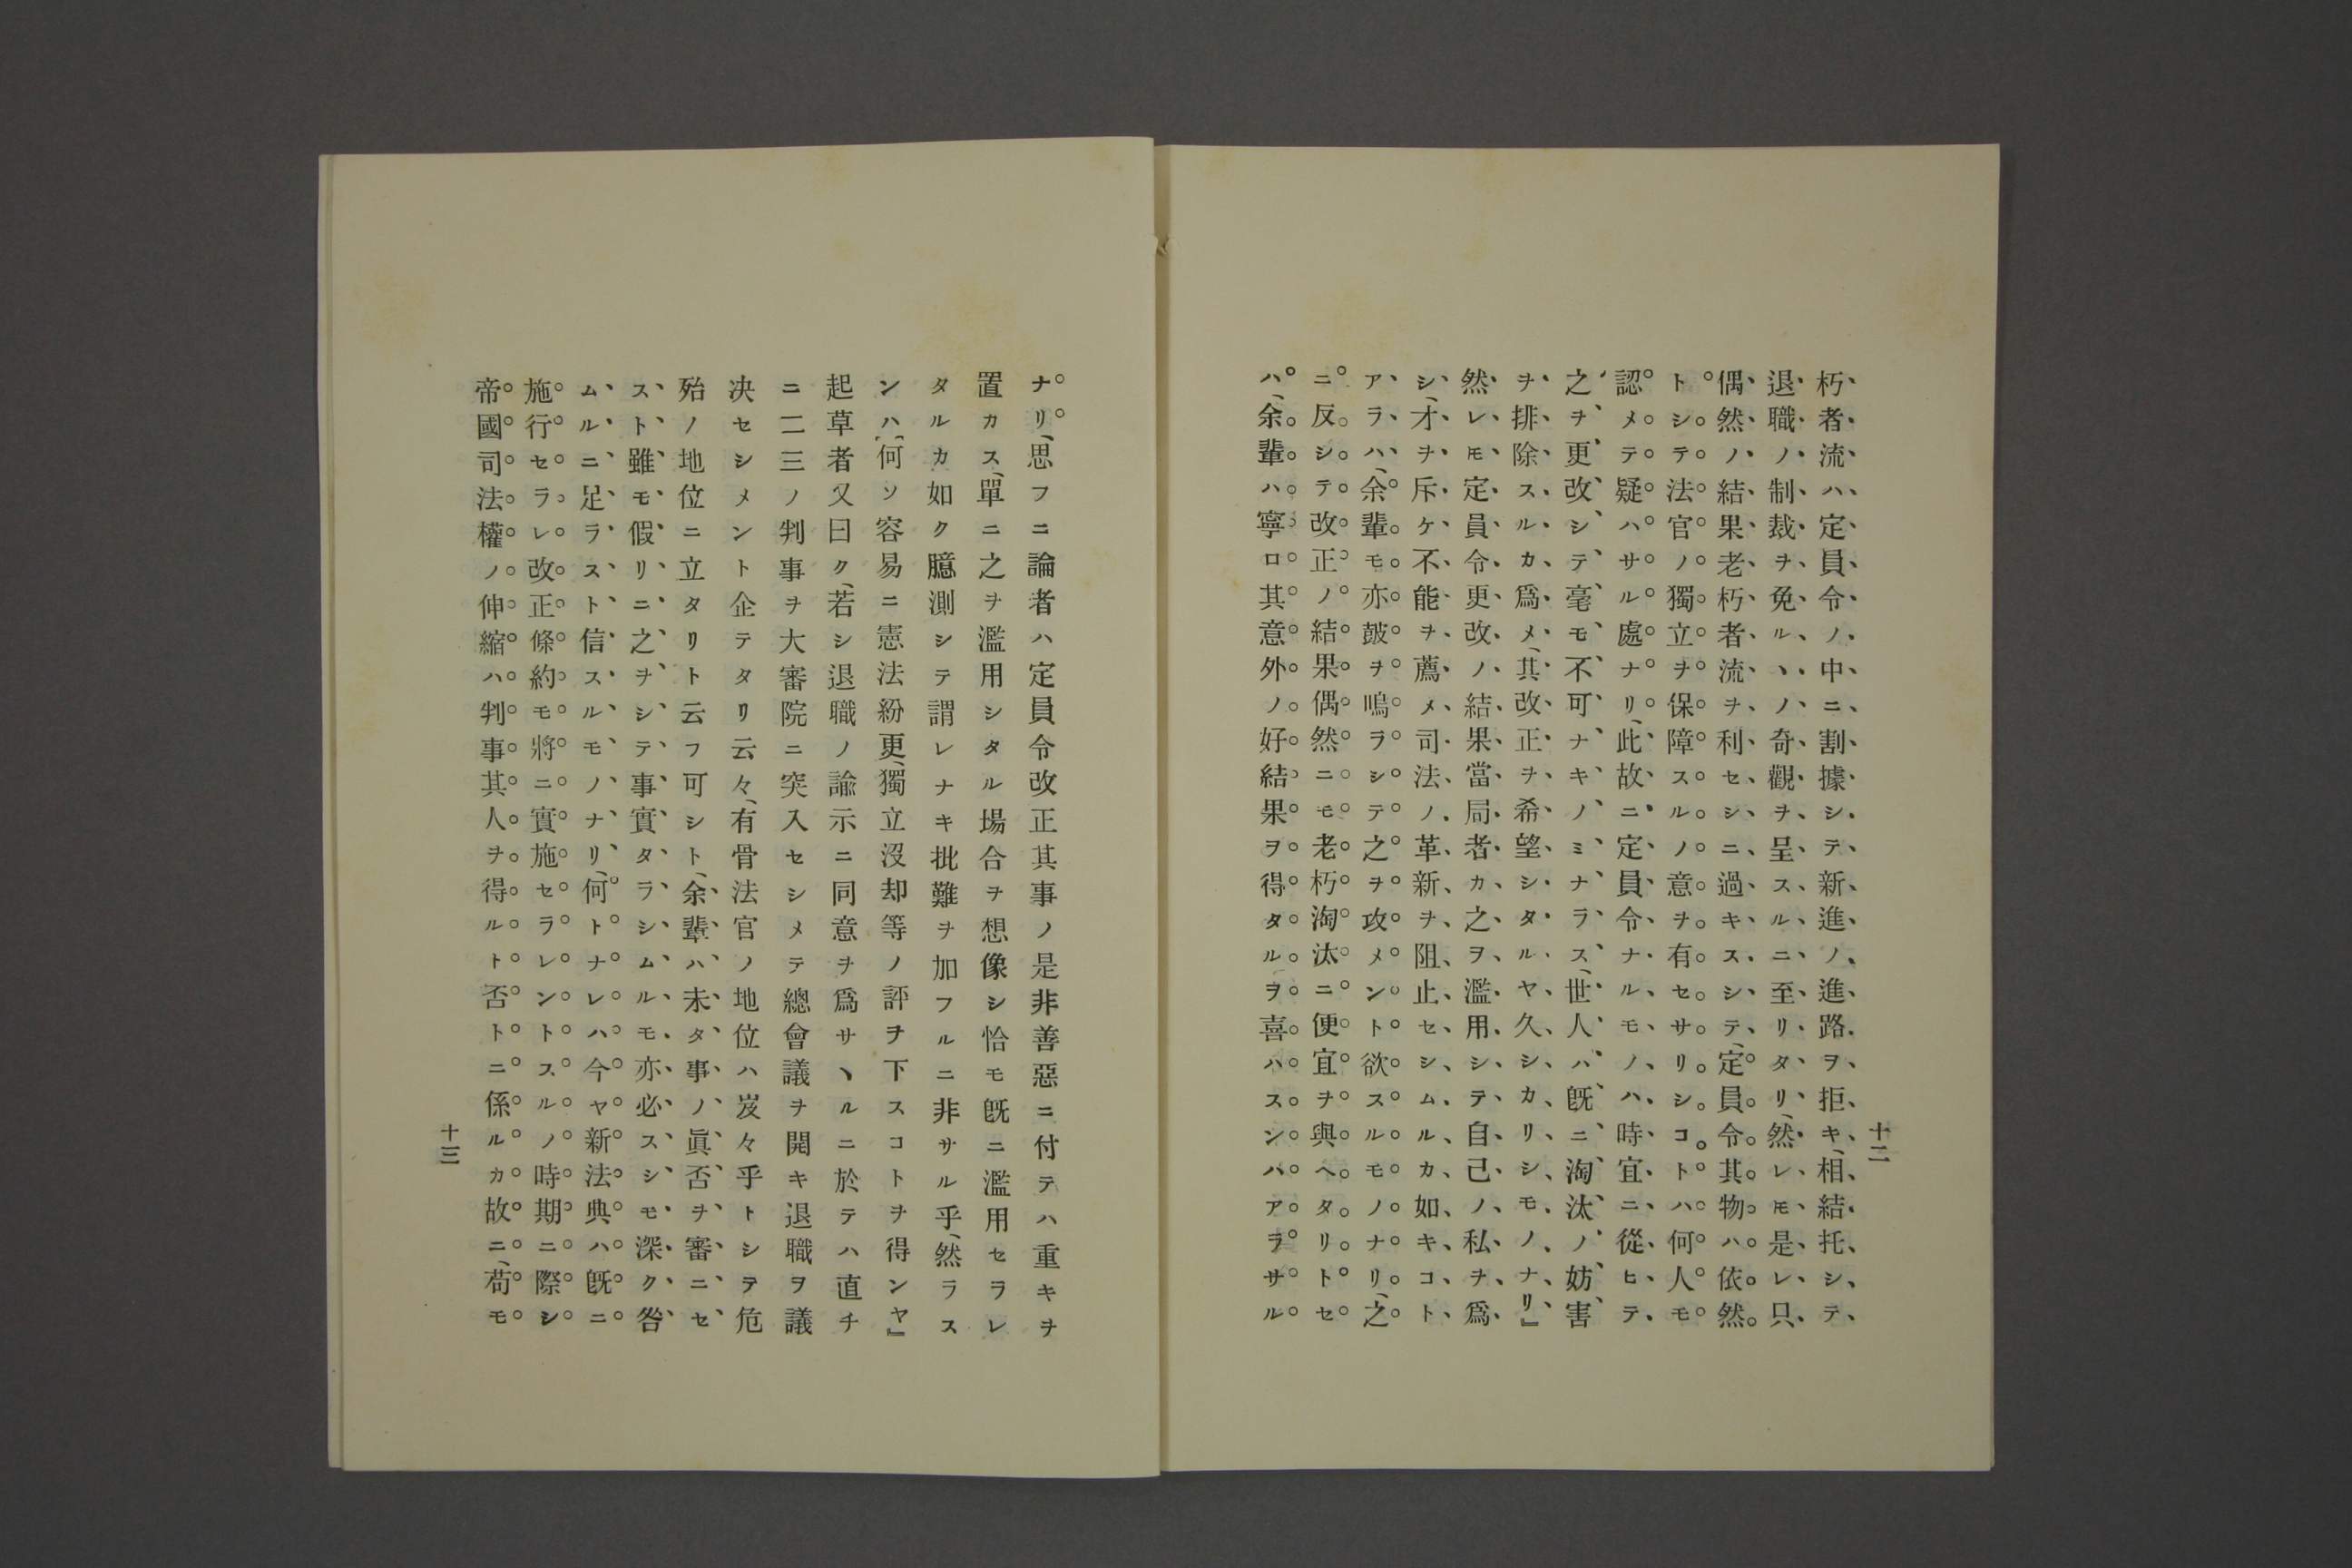 十二
朽者流ハ定員令ノ中ニ割據シテ新進ノ進路ヲ拒キ、相結托シテ
退職ノ制裁ヲ免ルヽノ奇觀ヲ呈スルニ至リタリ、然レ𪜈是レ只
偶然ノ結果老朽者流ヲ利セシニ過キスシテ、定員令其物ハ依然
トシテ法官ノ獨立ヲ保障スルノ意ヲ有セサリシコトハ何人モ
認メテ疑ハサル處ナリ、此故ニ定員令ナルモノハ時宜ニ從ヒテ
之ヲ更改シテ毫モ不可ナキノミナラス、世人ハ既ニ淘汰ノ妨害
ヲ排除スルカ爲メ、其改正ヲ希望シタルヤ久シカリシモノナリ』
然レ𪜈定員令更改ノ結果當局者カ之ヲ濫用シテ自己ノ私ヲ爲
シ、才ヲ斥ケ不能ヲ薦メ司法ノ革新ヲ阻止セシムルカ如キコト
アラハ、余輩モ亦皷ヲ鳴ラシテ之ヲ攻メント欲スルモノナリ、之
ニ反シテ改正ノ結果偶然ニモ老朽淘汰ニ便宜ヲ與ヘタリトセ
ハ、余輩ハ寧ロ其意外ノ好結果ヲ得タルヲ喜ハスンハアラサル
ナリ、思フニ論者ハ定員令改正其事ノ是非善惡ニ付テハ重キヲ
置カス、單ニ之ヲ濫用シタル塲合ヲ想像シ恰モ既ニ濫用セラレ
タルカ如ク臆測シテ謂レナキ批難ヲ加フルニ非サル乎、然ラス
ンハ、何ソ容易ニ憲法紛更、獨立沒却等ノ評ヲ下スコトヲ得ンヤ』
起草者又曰ク、若シ退職ノ諭示ニ同意ヲ爲サヽルニ於テハ直チ
ニ二三ノ判事ヲ大審院ニ突入セシメテ總會議ヲ開キ退職ヲ議
决セシメント企テタリ云々、有骨法官ノ地位ハ岌々乎トシテ危
殆ノ地位ニ立タリト云フ可シト、余輩ハ未タ事ノ眞否ヲ審ニセ
スト雖モ假リニ之ヲシテ事實タラシムルモ亦必スシモ深ク咎
ムルニ足ラスト信スルモノナリ、何トナレハ今ヤ新法典ハ既ニ
施行セラレ改正條約モ將ニ實施セラレントスルノ時期ニ際シ
帝國司法權ノ伸縮ハ判事其人ヲ得ルト否トニ係ルカ故ニ、苟モ
十三